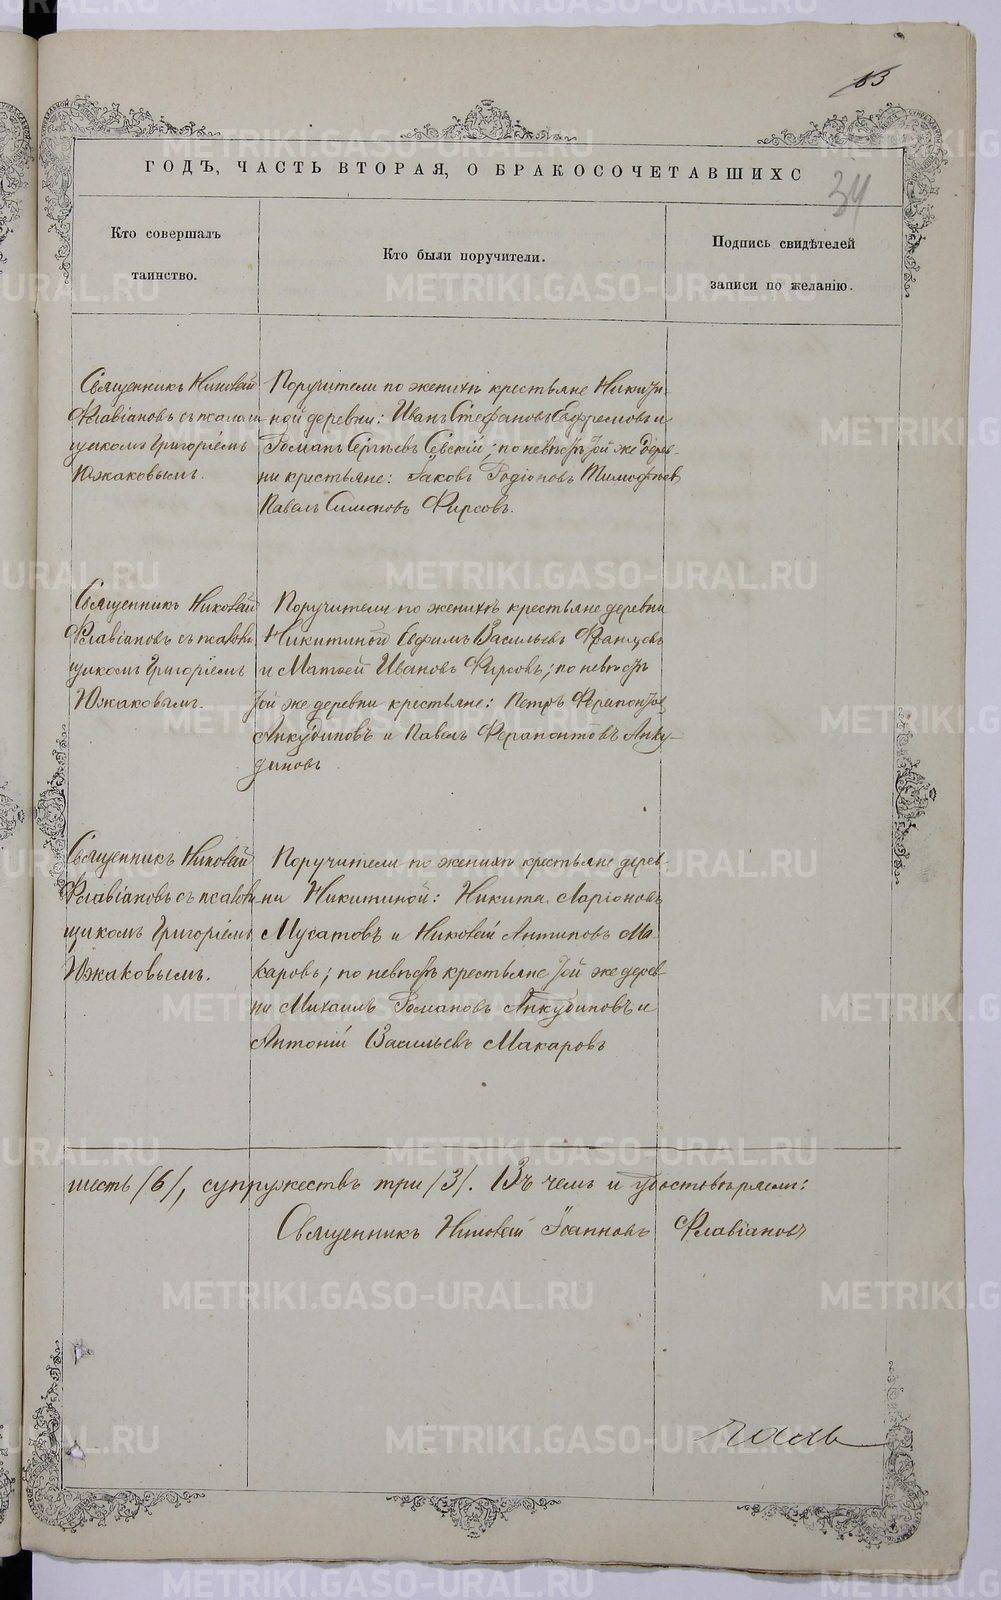 63
34
ГОДЪ, ЧАСТЬ ВТОРАЯ, О БРАКОСОЧЕТАВШИХС
Кто совершалъ
таинство.
Кто были поручители.
Подпись свидѣтелей
записи по желанію.
Священникъ Николай
Флавіановъ съ псалом
щикомъ Григоріемъ
Южаковымъ.
Поручители по женихѣ крестьяне Никити-
ной деревни: Иванъ Стефановъ Ефремовъ и
Романъ Сергѣевъ Сѣвскій; по невѣстѣ той же дерев-
ни крестьяне: Іаковъ Родіоновъ Тимофѣев
Павелъ Симоновъ Фирсовъ.
Священникъ Николай
Флавіановъ съ псалом
щикомъ Григоріемъ
Южаковымъ.
Поручители по женихѣ крестьяне деревни
Никитиной Евфимъ Васильевъ
и Матѳей Ивановъ Фирсовъ; по невѣстѣ
той же деревни крестьяне: Петръ
Анкудиновъ и Павелъ Ферапонтовъ Анку-
диновъ
Священникъ Николай
Флавіановъ съ псалом
щикомъ Григоріемъ
Южаковымъ.
Поручители по женихѣ крестьяне дерев-
ни Никитиной: Никита Ларіоновъ
Мусатовъ и Николай Антиповъ Ма-
каровъ; по невѣстѣ крестьяне той же дерев-
ни Михаилъ Романовъ Анкудиновъ и
Антоній Васильевъ Макаровъ
шесть /6/, супружествъ три /3/. Въ чемъ и удостовѣряемъ:
Священникъ Николай Іоанновъ Флавіановъ
METRIKI.GASO-URAL.RU